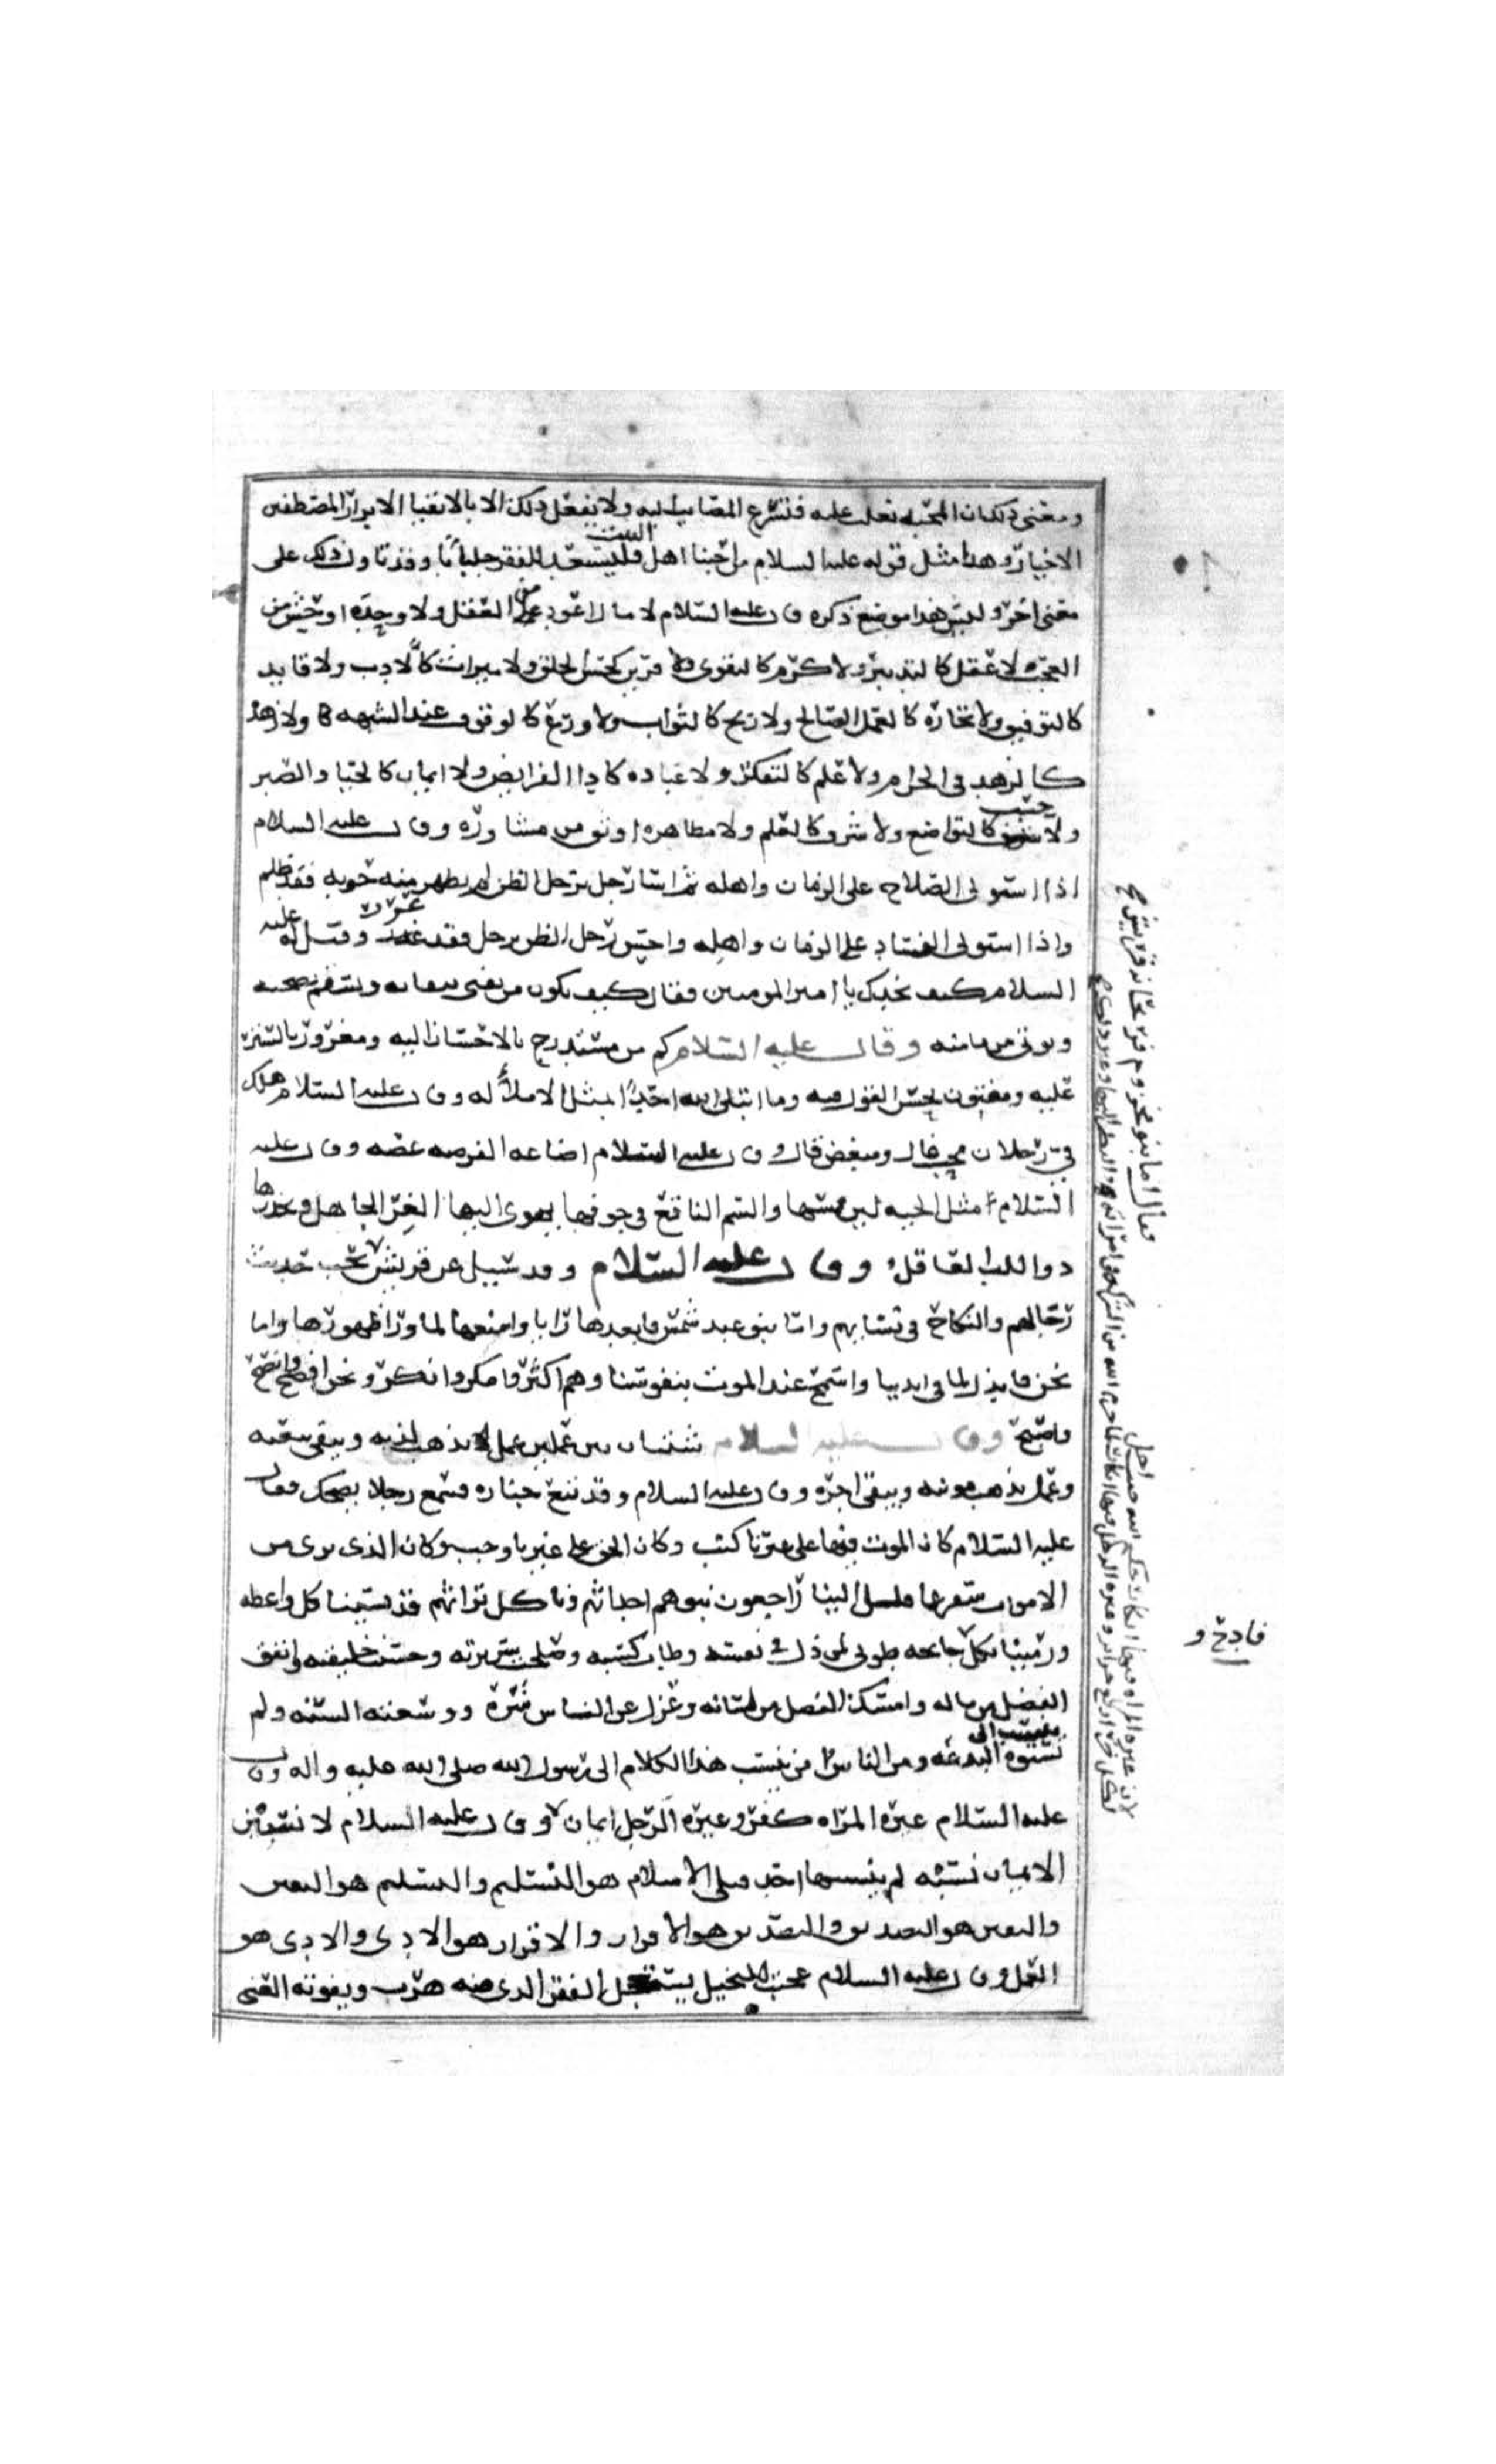 ومعنى ذلك ان المحنه تغلظ عليه فتسرع المصايب اليه ولا يفعل ذلك الا بالاتقيا الابرار المصطفين
الاخيار وهذا مثل قوله عليه السلام من احبنا اهل البيت فليستعد للفقر جلبابًا وقد تاول ذلك على
معنى اخر وليس هذا موضع ذكره وقال عليه السلام لا مال اعود من العقل ولا وحده اوحش من
العجب ولا عقل كالتدبير ولا كرم كالتقوى ولا قرين كحسن الخلق ولا ميراث كالادب ولا قايد
كالتوفيق ولا تجاره كالعمل الصالح ولا ربح كالثواب ولا ورع كالوقوف عند الشبهه ولا زهد
كالزهد في الحرام ولا علم كالتفكر ولا عباده كاداالفرايض ولا ايمان كالحيا والصبر
ولا حسب كالتواضع ولا شرف كالعلم ولا مظاهره اوثق من مشاوره وقال عليه السلام
اذا استولى الصلاح على الزمان واهله ثم اسا رجل برجل الظن لم يظهر منه حوبه فقد ظلم
واذا استولى الفساد على الزمان واهله واحسن رجل الظن برجل فقد غرر وقيل له عليه
السلام كيف نجدك يا امير المومنين فقال كيف يكون من يفنى ببقايه ويسقم بصحته
ويوتى من مامنه وقال عليه السلام كم من مستدرج بالاحسان اليه ومغرور بالستر
عليه ومفتون بحسن القول فيه وما ابتلى الله احدًا بمثل الاملا له وقال عليه السلام هلك
في رجلان محب غال ومبغض قال وقال عليه السلام اضاعه الفرصه غصه وقال عليه
السلام مثل الحيه لين مسها والسم الناقع في جوفها يهوى اليها الغر الجاهل ويحذرها
ذو اللب العاقل وقال عليه السلام وقد سيل عن قريش تحب حديث
رجالهم والنكاح في نسايهم واما بنو عبد شمس فابعدها رايا وامنعها لما ورا ظهورها واما
نحن فابذل لما في ايدينا واسمح عند الموت بنفوسنا وهم اكثر وامكر وانكر ونحن افصح وانصح
واصبح وقال عليه السلام شتان بين عملين عمل تذهب لذته ويبقى تبعته
وعمل تذهب مونته ويبقى اجره وقال عليه السلام وقد تبع جنازه فسمع رجلا يضحك فقال
عليه السلام كان الموت فيها على غيرنا كتب وكان الحق على غيرنا وجب وكان الذى نرى من
الاموات سفر عما قليل الينا راجعون نبوهم اجداثهم وناكل تراثهم قد نسينا كل واعظه
ورمينا بكل جايحه طوبى لمن ذل في نفسه وطاب كسبه وصلحت سريرته وحسنت خليقته وانفق
الفضل من ماله وامسك الفضل من لسانه وعزل عن الناس شره ووسعته السنه ولم
ينسب الى البدعه ومن الناس من ينسب هذا الكلام الى رسول الله صلى الله عليه واله وقال
عليه السلام غيره المراه كفر وغيره الرجل ايمان وقال عليه السلام لا نسبن
الاسلام نسبه لم ينسبها احد قبلى الاسلام هو التسليم والتسليم هو اليقين
واليقين هو التصديق والتصديق هو الاقرار والاقرار هو الادى والادى هو
العمل وقال عليه السلام عجبت للبخيل يستعجل الفقر الذى منه هرب ويفوته الغنى
فقال اما بنو مخزوم فريحانه قريش
فادح و